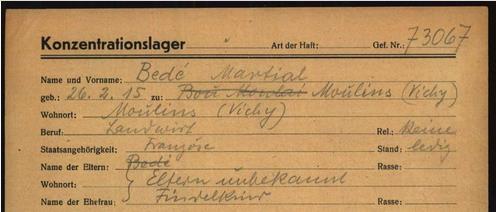 Konzentrationslager Art der Haft: Gef. Nr.: 73067
Name und Vorname: Bedé Martial
geb.: 26. 2. 15 zu: Bou Moulai Moulins (Vichy)
Wohnort: Moulins (Vichy)
Beruf: Landwirt Rel.: keine
Staatsangehörigkeit: Franzose Stand: ledig
Name der Eltern: Bedé Rasse:
Wohnort: Eltern unbekannt
Name der Ehefrau: Findelkind Rasse: